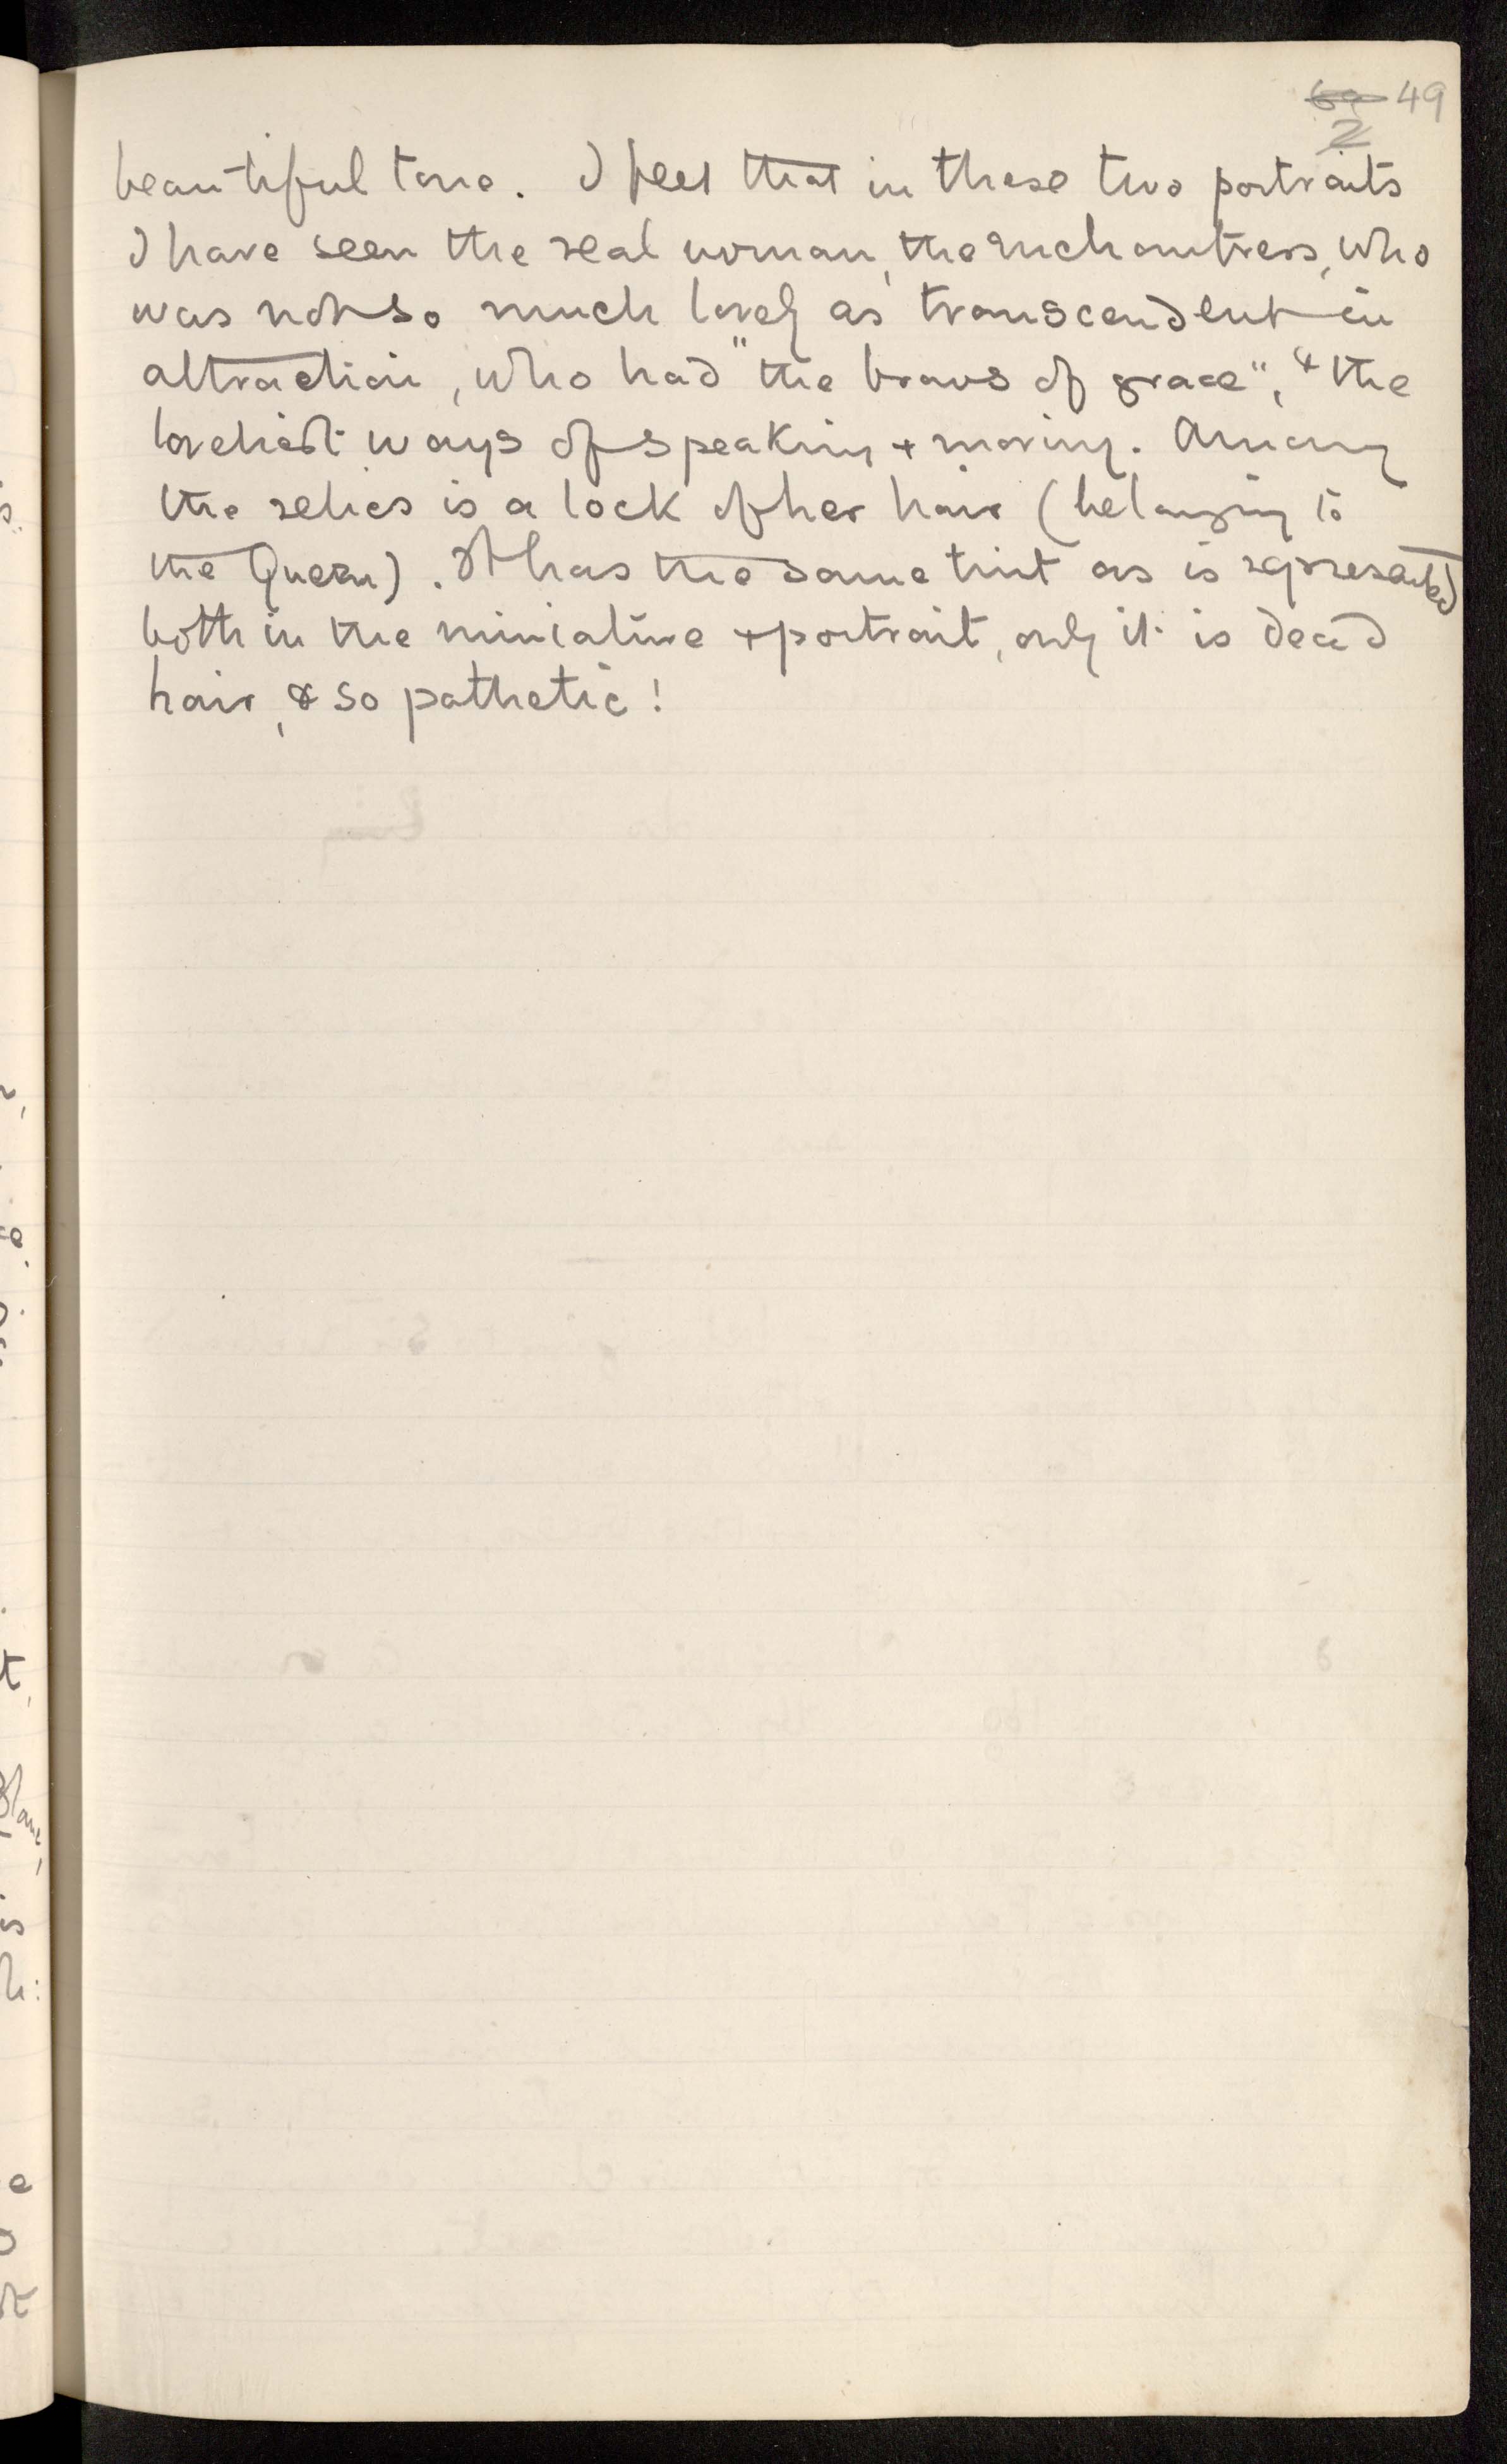 49
2
beautiful tone. I feel that in these two portraits
I have seen the real woman, the enchantress, who
was not so much lovely as transcendent in
attraction, who had "the brows of grace", & the
loveliest ways of speaking + moving. Among
the relics is a lock of her hair (belonging to
the Queen). It has the same tint as is represented
both in the miniature + portrait, only it is dead
hair, & so pathetic!